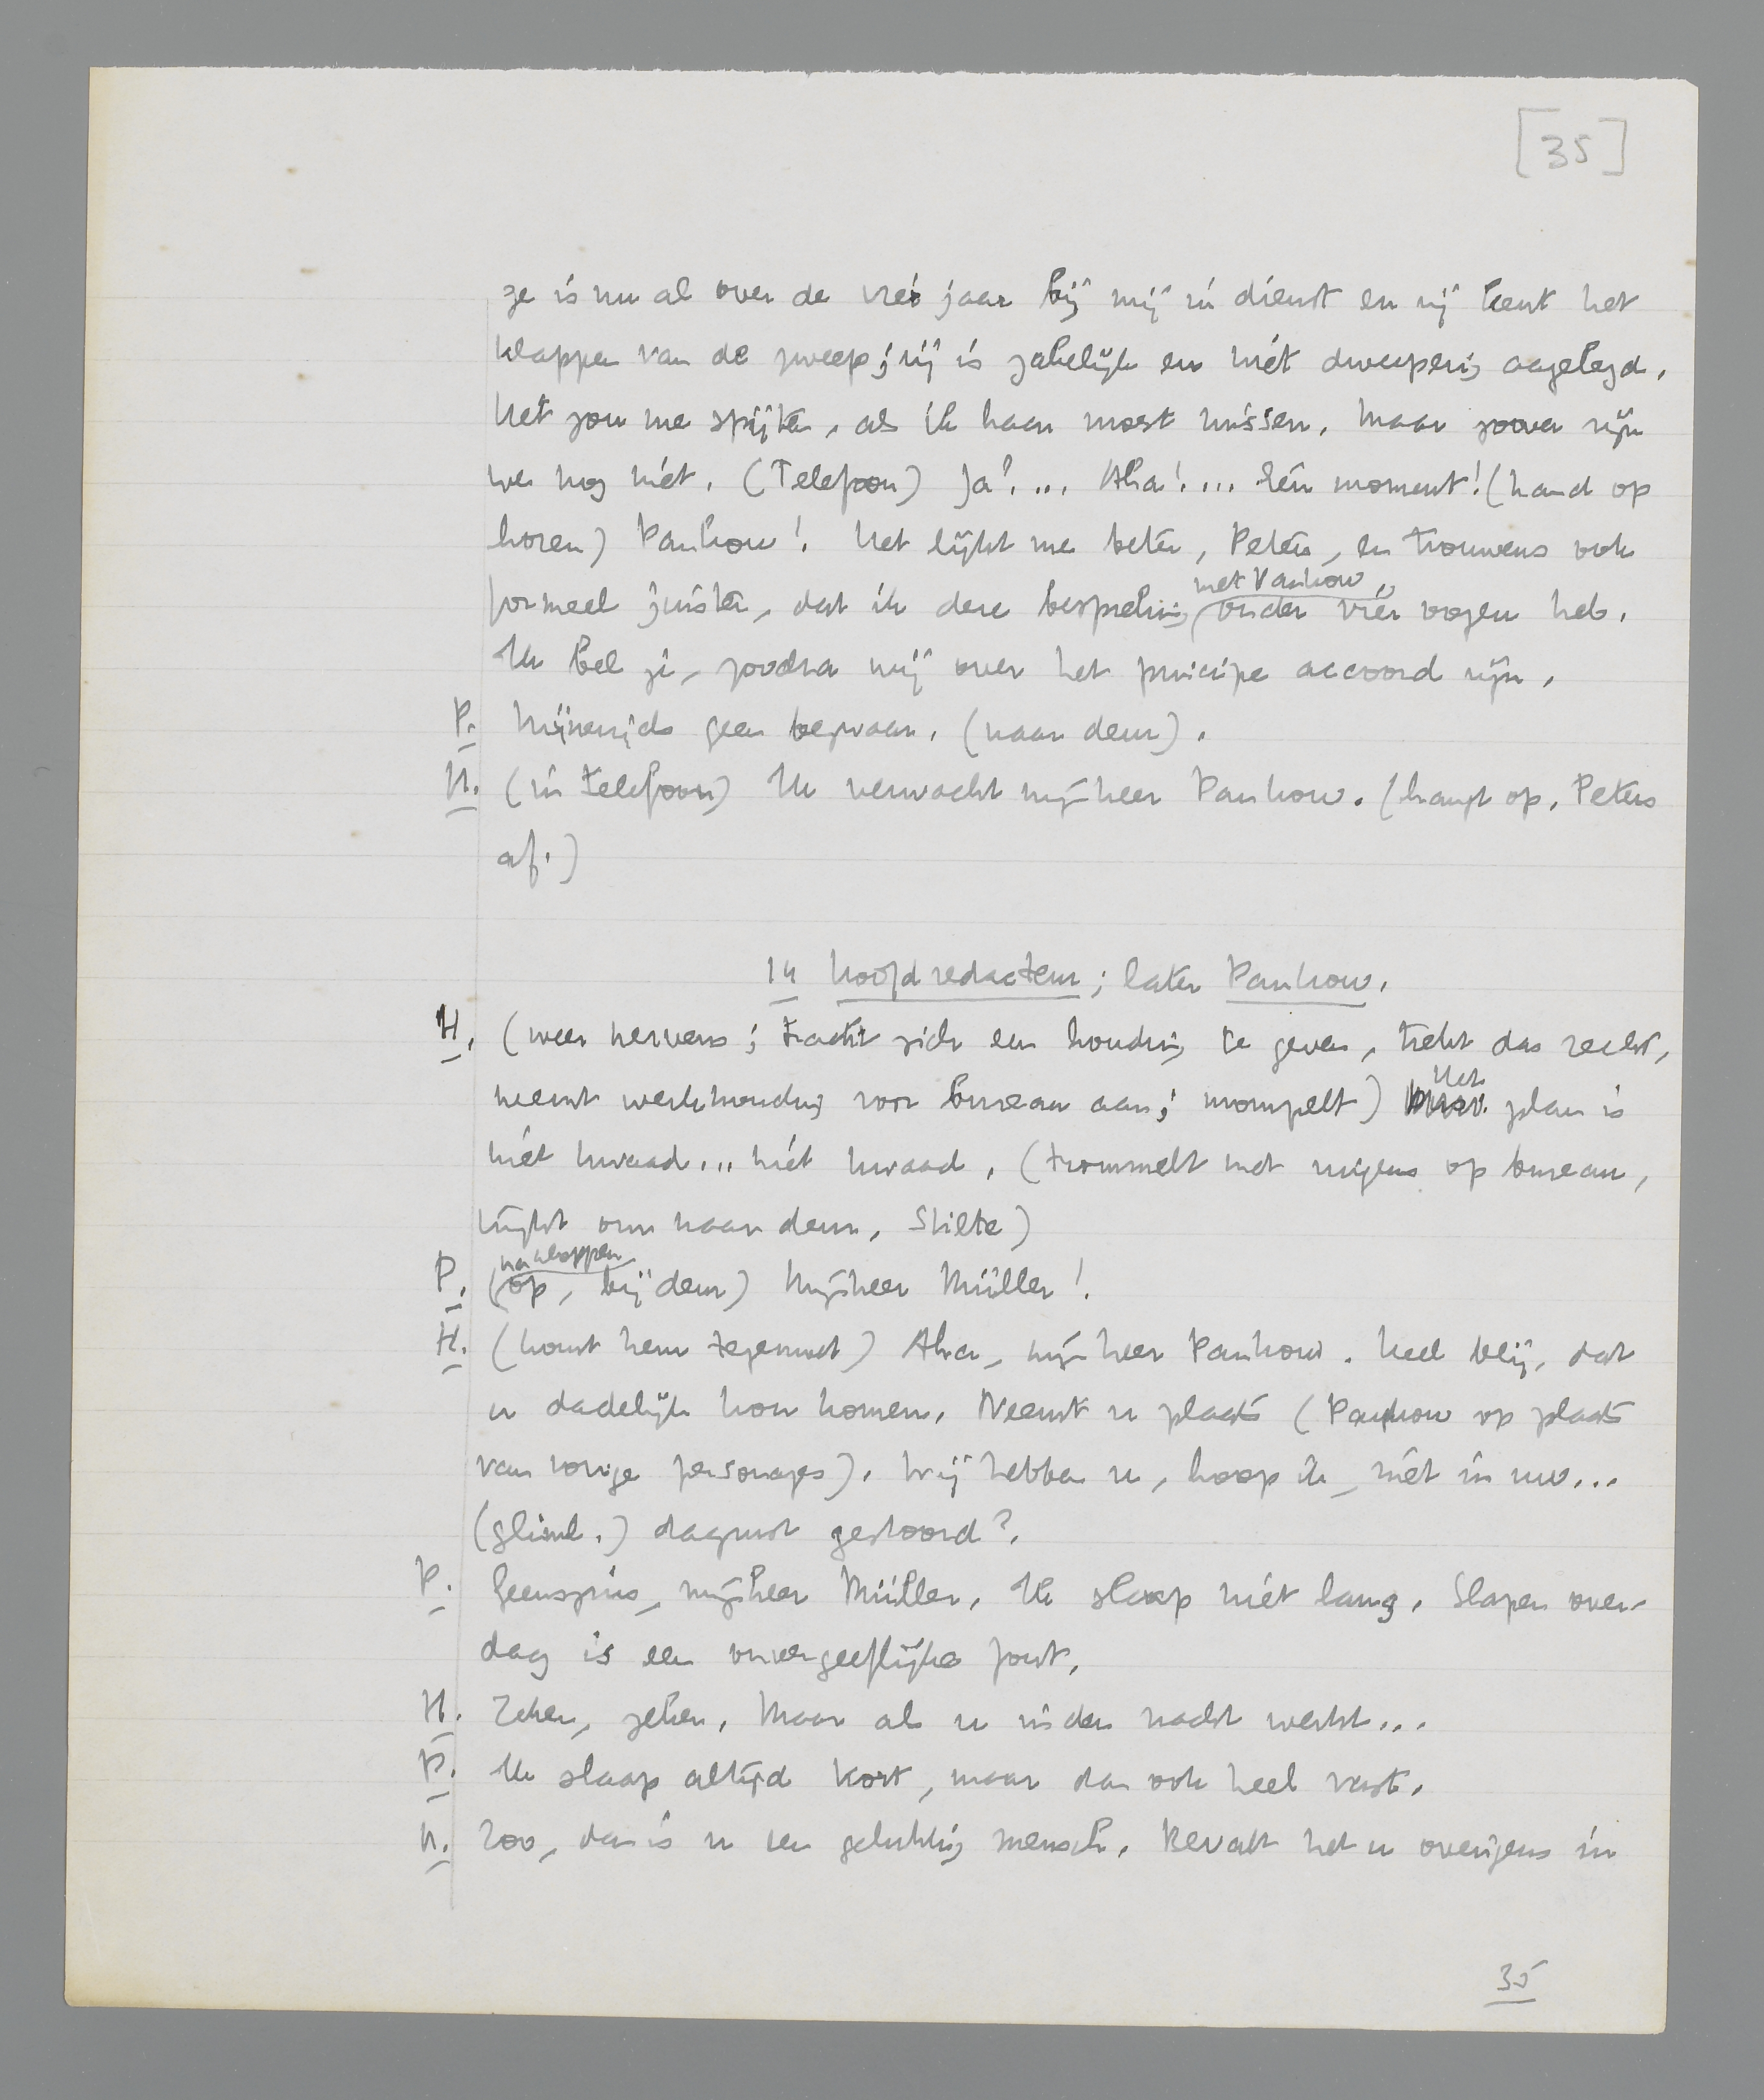 [35]
ze is nu al over de vier jaar bij mij in dienst en zij kent het
klappen van de zweep; zij is zakelijk en niet dweeperig aangelegd.
Het zou me spijten, als ik haar moest missen. Maar zoover zijn
we nog niet. (Telefoon) Ja?... Aha!... Eén moment! (hand op
horen) Pankow! Het lijkt me beter, Peters, en trouwens ook
formeel juister, dat ik deze bespreking met Pankow onder vier oogen heb.
Ik bel je, zoodra wij over het principe accoord zijn.
P. Mijnerzijds geen bezwaar. (naar deur).
H. (in telefoon) Ik verwacht mijnheer Pankow. (hangt op. Peters
af.)
14 hoofdredacteur; later Pankow.
H. (weer nerveus; tracht zich een houding te geven, trekt das recht,
neemt werkhouding voor bureau aan; mompelt) Het plan is
niet kwaad... niet kwaad. (trommelt met vingers op bureau,
kijkt om naar deur. Stilte)
P. (na kloppen op, bij deur) Mijnheer Müller!
H. (komt hem tegemoet) Aha, mijnheer Pankow. Heel blij, dat
u dadelijk kon komen. Neemt u plaats (Pankow op plaats
van vorige personages). Wij hebben u, hoop ik, niet in uw...
(gliml.) dagrust gestoord?
P. Geenszins, mijnheer Müller. Ik slaap niet lang. Slapen over-
dag is een onvergeeflijke fout.
H. Zeker, zeker. Maar als u in den nacht werkt...
P. Ik slaap altijd kort, maar dan ook heel vast.
H. Zoo, dan is u een gelukkig mensch. Bevalt het u overigens in
35